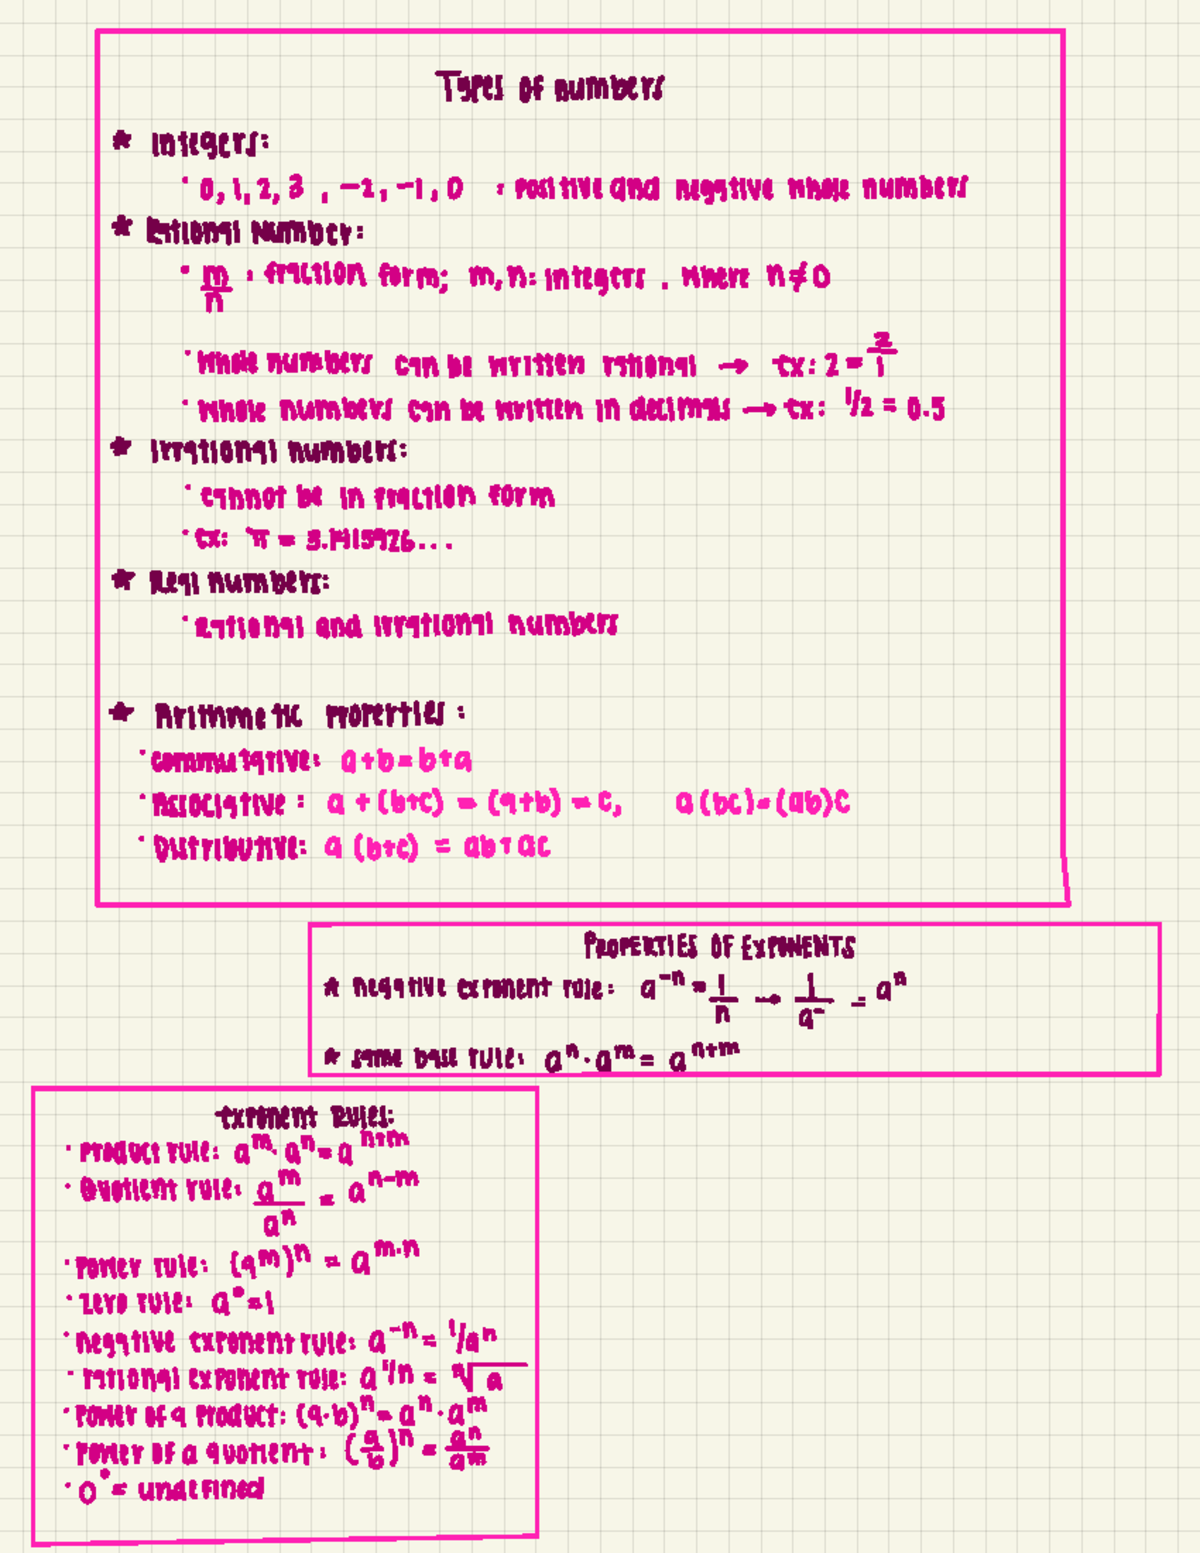 Types of numbers
* Integers:
· 0, 1, 2, 3 , -2, -1, 0 : positive and negative whole numbers
* Rational Number:
· m/n : fraction form; m, n: integers . where n ≠ 0
· whole numbers can be written rational → ex: 2 = 2/1
· whole numbers can be written in decimals → ex: 1/2 = 0.5
* Irrational numbers:
· cannot be in fraction form
· ex: π = 3.1415926...
* Real numbers:
· Rational and irrational numbers
* Arithmetic properties :
· commutative: a+b=b+a
· Associative : a + (b+c) = (a+b) = c, a(bc)=(ab)c
· Distributive: a (b+c) = ab+ac
PROPERTIES OF EXPONENTS
* negative exponent rule: a⁻ⁿ = 1/n → 1/a⁻ = aⁿ
* same base rule: aⁿ · aᵐ = aⁿ⁺ᵐ
Exponent Rules:
· product rule: aᵐ · aⁿ = aⁿ⁺ᵐ
· Quotient rule: aᵐ/aⁿ = aⁿ⁻ᵐ
· Power rule: (aᵐ)ⁿ = aᵐ·ⁿ
· zero rule: a⁰=1
· negative exponent rule: a⁻ⁿ = 1/aⁿ
· rational exponent rule: a¹/ⁿ = ⁿ√a
· Power of a product: (a·b)ⁿ = aⁿ · aᵐ
· Power of a quotient : (a/b)ⁿ = aⁿ/aᵐ
· 0⁰ = undefined